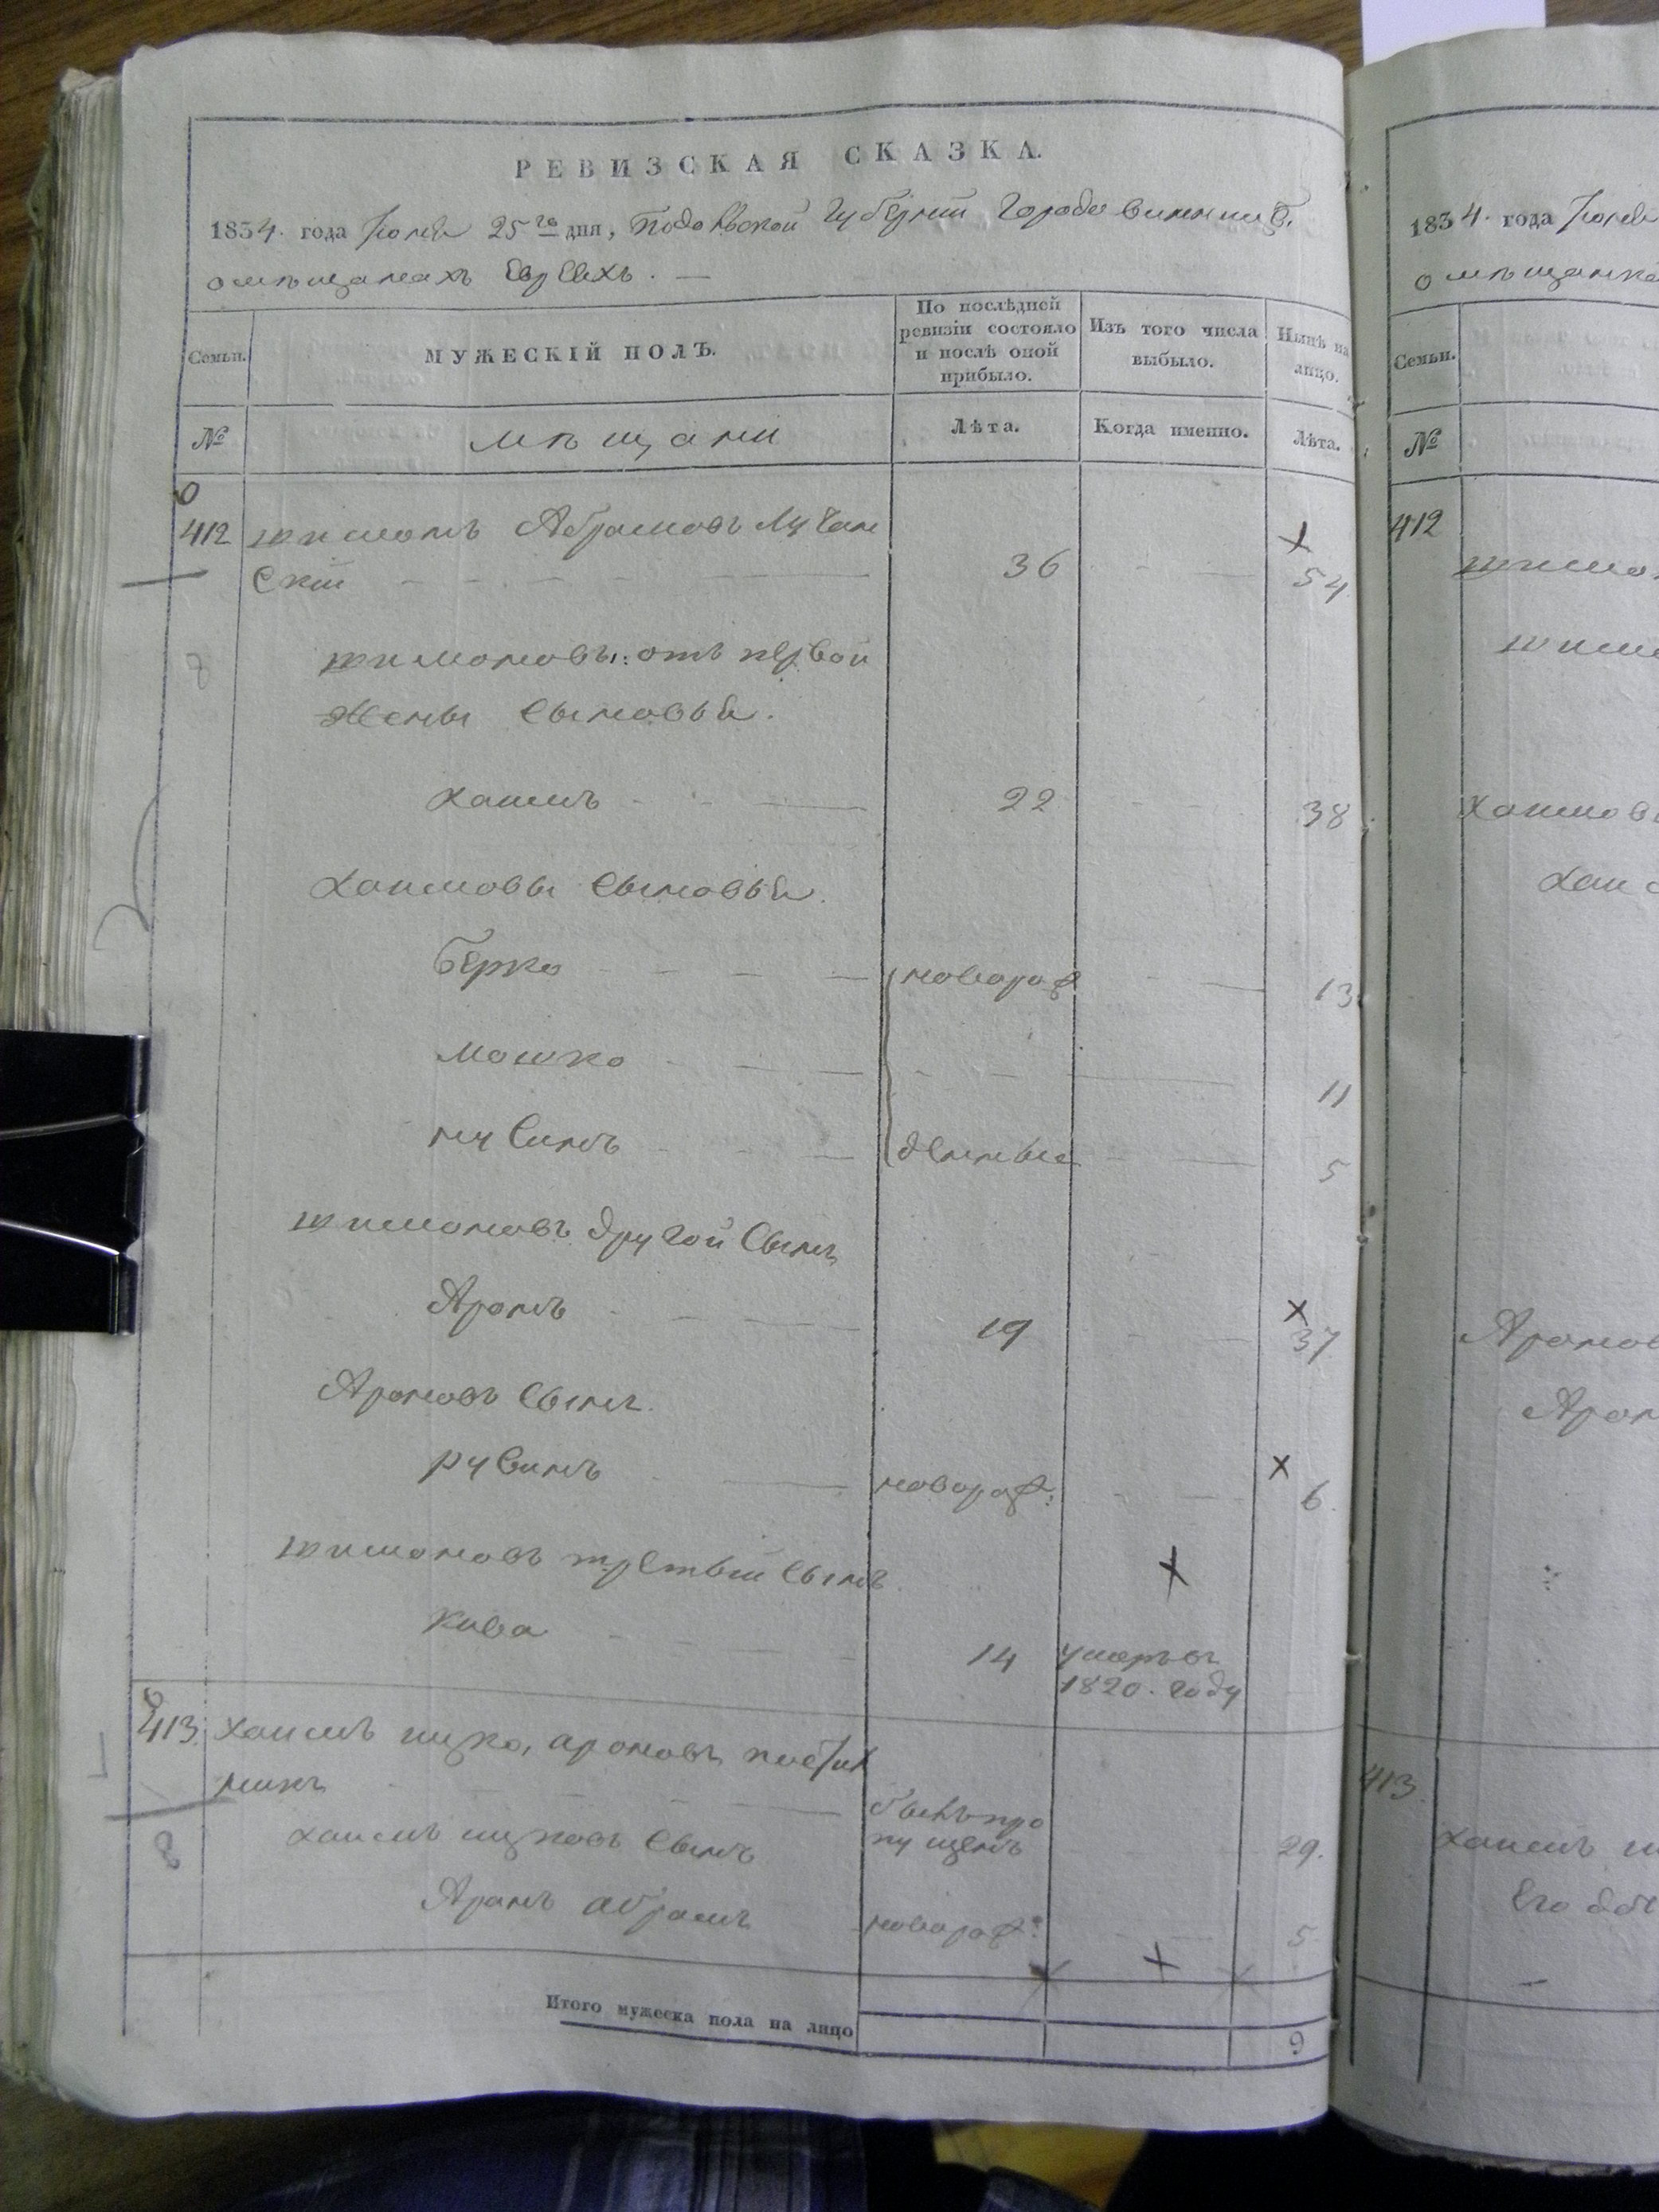 РЕВИЗСКАЯ СКАЗКА.
1834. года Іюня 25го дня, Подольской Губерніи Города Винницы.
о мѣщанахъ Евреяхъ.
Семьи. МУЖЕСКІЙ ПОЛЪ. По послѣдней ревизіи состояло и послѣ оной прибыло. Изъ того числа выбыло. Нынѣ на лицо.
№ мѣщани Лѣта. Когда именно. Лѣта.
412 шимонъ Абрамовъ Лучан
скій 36 54
шимоновы: отъ первой
жены сыновья.
хаимъ 22 38
хаимовы сыновья.
Берко новорож 13
мошко 11
нусинъ денные 5
шимоновъ другой сынъ
Аронъ 19 37
Ароновъ сынъ.
рувинъ новорож: 6.
шимоновъ третьій сынъ
кива 14 умеръ въ
1820. году
413. хаимъ ицко, ароновъ
никъ былъ про
хаимъ ицковъ сынъ пущенъ 29.
Аронъ абрамъ новорож: 5
Итого мужеска пола на лицо 9
1834. года Іюня
о мѣщанка
Семьи.
№
412
шимо
шим
хаимовы
хаи
Аронов
Арон
413
хаимъ и
Его